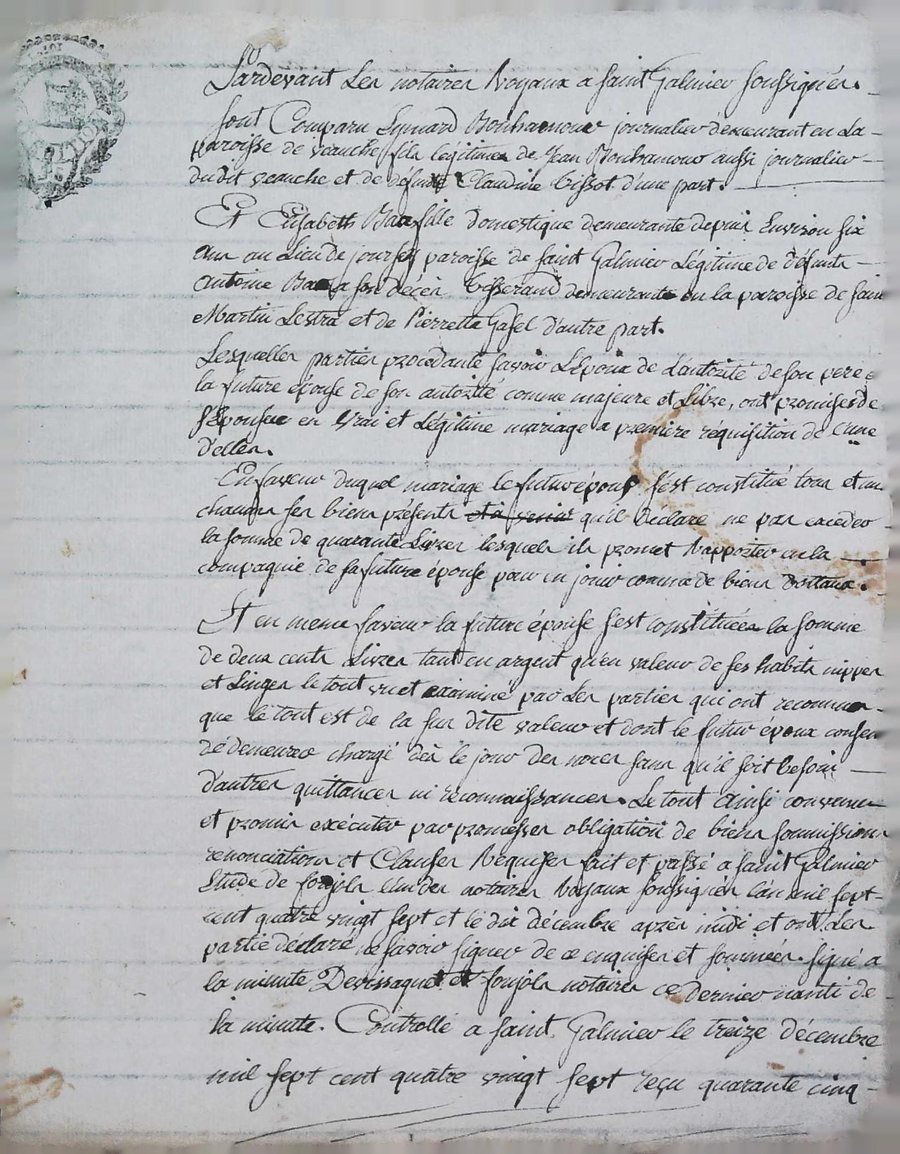 Pardevant Les notaires Royaux a saint Galmier soussignés
sont Comparu journalier demeurant en La
paroisse de veauche, fils légitime de Jean aussi journalier
du dit veauche et de défunte Claudine Bissot d'une part.
Et Elisabeth fille domestique demeurante depuis Environ six
ans au Lieu de paroisse de saint Galmier Légitime de défunts
antoine a son décès Tisserand demeurante en la paroisse de saint
Martin Lestra et de Pierrette d'autre part.
Lesquelles parties procédante savoir L'époux de L'autorité de son pere
la future épouse de son autorité comme majeure et Libre, ont promises de
s'épouser en Vrai et Légitime mariage a première réquisition de L'une
d'elles.
En faveur duquel mariage le futur époux s'est constitué tous et un
chacun ses biens présents et a venir qu'il Déclare ne pas exceder
la somme de quarante Livres lesquels il promet Rapporter en la
compagnie de sa future épouse pour un jour comme de biens
Et en meme faveur la future épouse s'est constituée la somme
de deux cents Livres tant en argent qu'en valeur de ses habits nippes
et Linges le tout vu et examiné par Les parties qui ont reconnu
que le tout est de la sus dite valeur et dont le futur époux consen
de demeurer chargé dès le jour des noces sans qu'il soit besoin
d'autres quittances ni reconnoissances. Le tout Ainsi convenu
et promis exécuter par promesses obligation de biens soumissions
renonciations et Clauses Requises fait et passé a saint Galmier
Etude de fonjols L'un des notaires Royaux soussignés L'an mil sept
cent quatre vingt sept et le dix décembre après midi et ont Les
partie déclaré ne savoir signer de ce enquises et sommées. signé a
la minute Devissaguet et fonjols notaires ce dernier nanti de
la minute. Controllé a saint Galmier le treize décembre
mil sept cent quatre vingt sept reçu quarante cinq